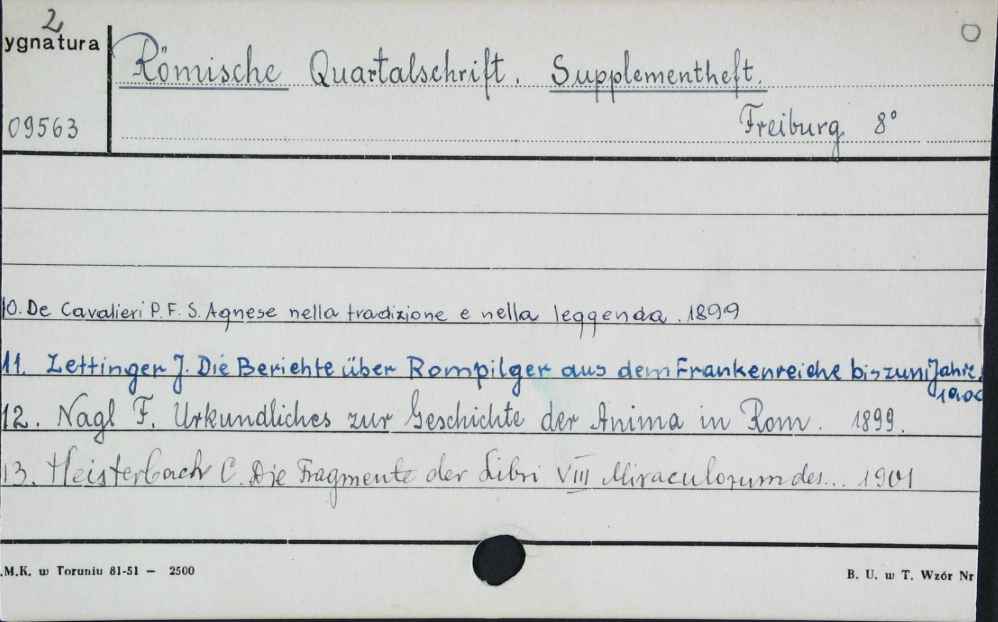 2
ygnatura
Römische Quartalschrift. Supplementheft.
09563
Freiburg 8°
10. De Cavalieri P. F. S. Agnese nella tradizione e nella leggenda. 1899
11. Zettinger J. Die Berichte über Rompilger aus dem Frankenreiche bis zum Jahre
1900
12. Nagl F. Urkundliches zur Geschichte der Anima in Rom. 1899.
13. Heisterbach C. Die Fragmente der Libri VIII Miraculorum des... 1901
.M.K. w Toruniu 81-51 — 2500
B. U. w T. Wzór Nr